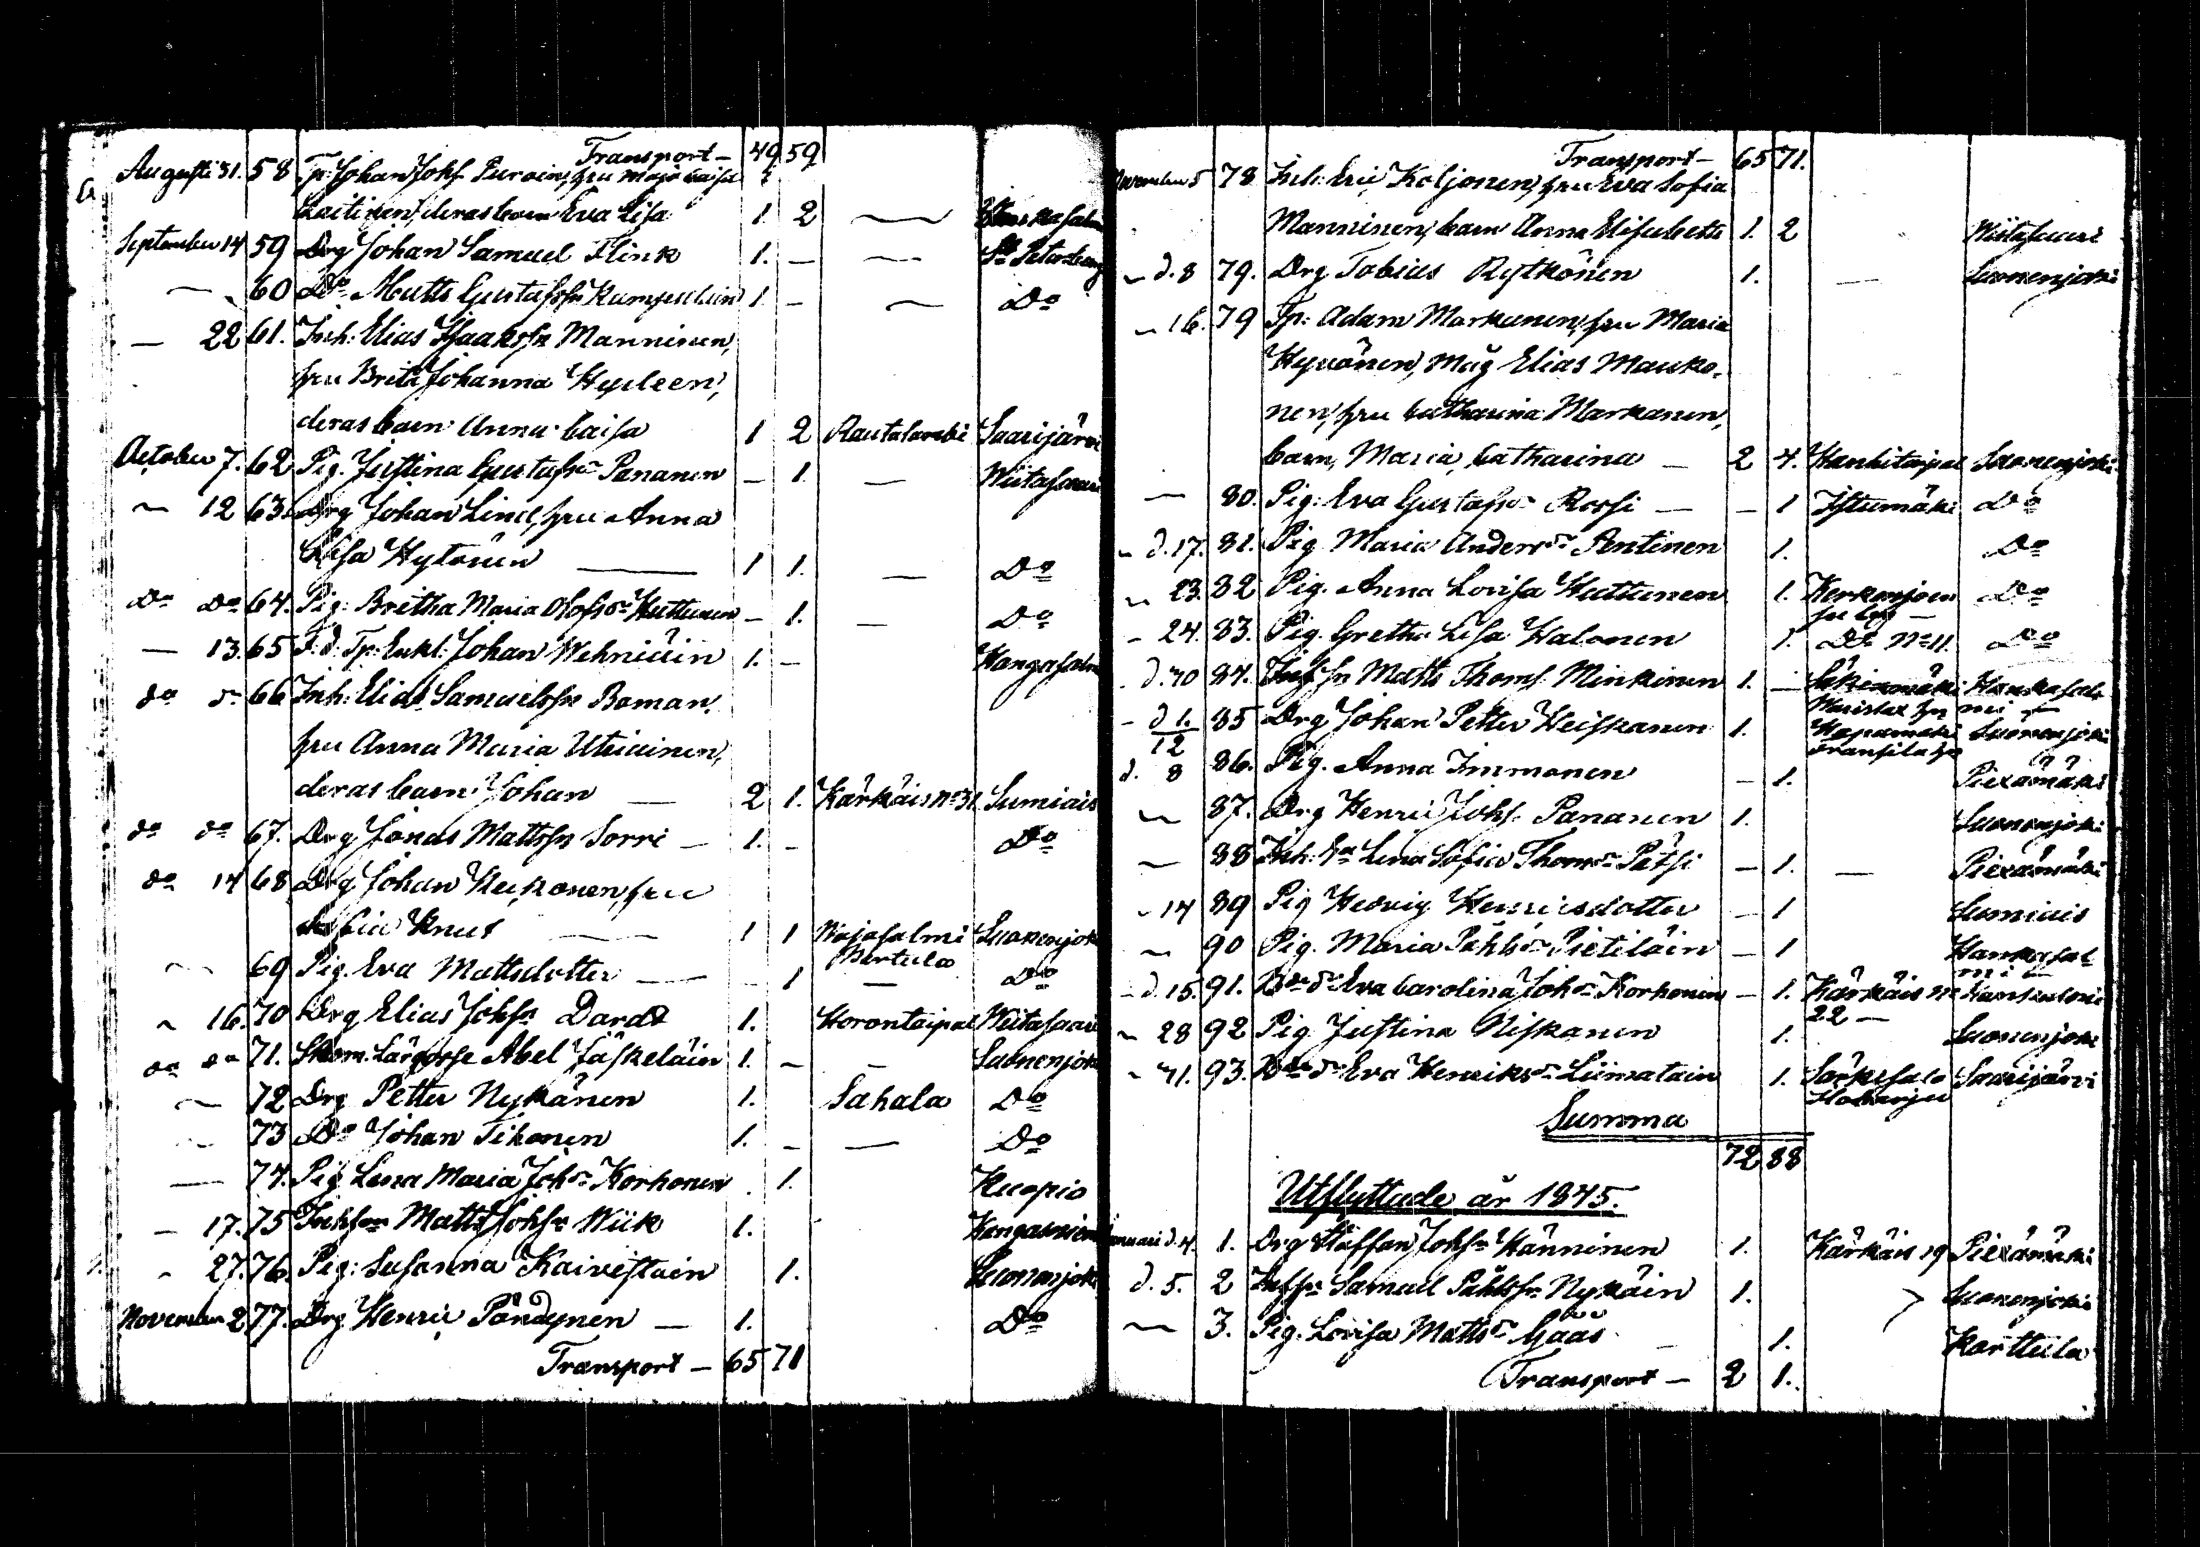 Transport — 49 59
Augusti 31. 58 Tp: Johan Johs. Puroin, hru Maja Caisa
Laitinen, deras barn Eva Lisa 1. 2 — Hankasalmi
September 14 59 Drg Johan Samuel Flink 1. — — St Petersburg
— 60 Do Matts Gustafss: 1 — — Do
— 22 61. Inh: Elias Isaakss Manninen,
hru Brita Johanna Hyuleen,
deras barn Anna Caisa 1 2 Rautalambi Saarijärvi
October 7. 62 Pig. Justina Gustafsdr Pananen — 1. — Wiitasaari
— 12 63 Drg Johan Lind, hru Anna
Lisa Hytönen — 1 1. — Do
Do Do 64. Pig: Britha Maria Olofsdr Huttunen — 1. — Do
— 13. 65 F.d. Tp: Enkl. Johan Wehniäin 1. — Kangasalmi
do do 66 Inh: Elias Samuelss Boman,
hru Anna Maria Utriainen,
deras barn Johan — 2 1. Kärkäis No 31. Sumiais
do do 67. Drg Jonas Mattss Sorri — 1. — Do
do 14 68 Drg Johan Kukonen, hru
Sofia Knut — 1 1 Wajasalmi Suonenjoki
Pertula
— 69 Pig. Eva Mattsdotter — 1 — Do
— 16. 70 Drg Elias Johss Dardt 1. Horontaipal Wiitasaari
do do 71. Skom. Lärgosse Abel Jäskeläin 1. — — Suonenjoki
— 72 Drg Petter Nykänen 1. Sahala Do
— 73 Do Johan Tikonen 1. — — Do
— 74. Pig Lena Maria Johsdr Korhonen 1. Kuopio
— 17. 75 Inhson Matts Johss Wiik 1. Kangasniemi
— 27. 76. Pig: Susanna Kaivistain 1. Suonenjoki
November 2 77. Drg Henric Pöndynen — 1. Do
Transport — 65 71
Transport — 65 71.
November 5 78 Inh: Eric Koljonen, hru Eva Sofia
Manninen, barn Anna Elisabeth 1. 2 Wiitasaari
— d. 8 79. Drg Tobias Rytkönen 1. — Suonenjoki
— 16. 79 Tp: Adam Markanen, hru Maria
Hyvönen, Måg Elias Mauko-
nen, hru Catharina Markanen,
barn, Maria, Catharina — 2 4. Hankitaipal Suonenjoki
— 80. Pig: Eva Gustafsdr Rossi — — 1 Istumäki Do
— d. 17. 81. Pig Maria Andersdr Pentinen 1. Do
— 23. 82 Pig. Anna Lovisa Huttunen 1. Kerkonjoen Do
— 24. 83. Pig. Gretha Lisa Halonen 1. Do No 11. Do
d. 30 84. Inhss Matts Thoms. Minkinen 1. — Hankasal-
mi —
— d 1. 85 Drg Johan Petter Heiskanen 1. Hapamäki Suonenjoki
12
d. 8 86. Pig. Anna Immonen — 1. Piexämäki
— 87. Drg Henric Johs. Pananen 1. Suonenjoki
— 88 Inh: Ea Lena Sofia Thomsdr Pätsi — 1. — Piexämäki
— 14 89 Pig Hedvig Henricsdotter — 1 Sumiais
— 90 Pig. Maria Påhlsdr Pietiläin — 1 Hankasal-
mi —
— d. 15. 91. Bdedr Eva Carolina Johsdr Korhonen — 1. Kärkäis No Hankasalmi
22 —
— 28 92 Pig. Justina Niskanen 1. Suonenjoki
— 31. 93. Bdedr Eva Henriksdr Liimatain 1. Särkisalo Saarijärvi
Summa
72 88
Utflyttade år 1845.
Januari d. 4. 1. Drg Staffan Johss Hänninen 1. Kärkäis 19 Piexämäki
d. 5. 2 Inhss Samuel Påhlss Nykäin 1. Suonenjoki
— 3. Pig. Lovisa Mattsdr Gåås 1. Karttula
Transport — 2 1.